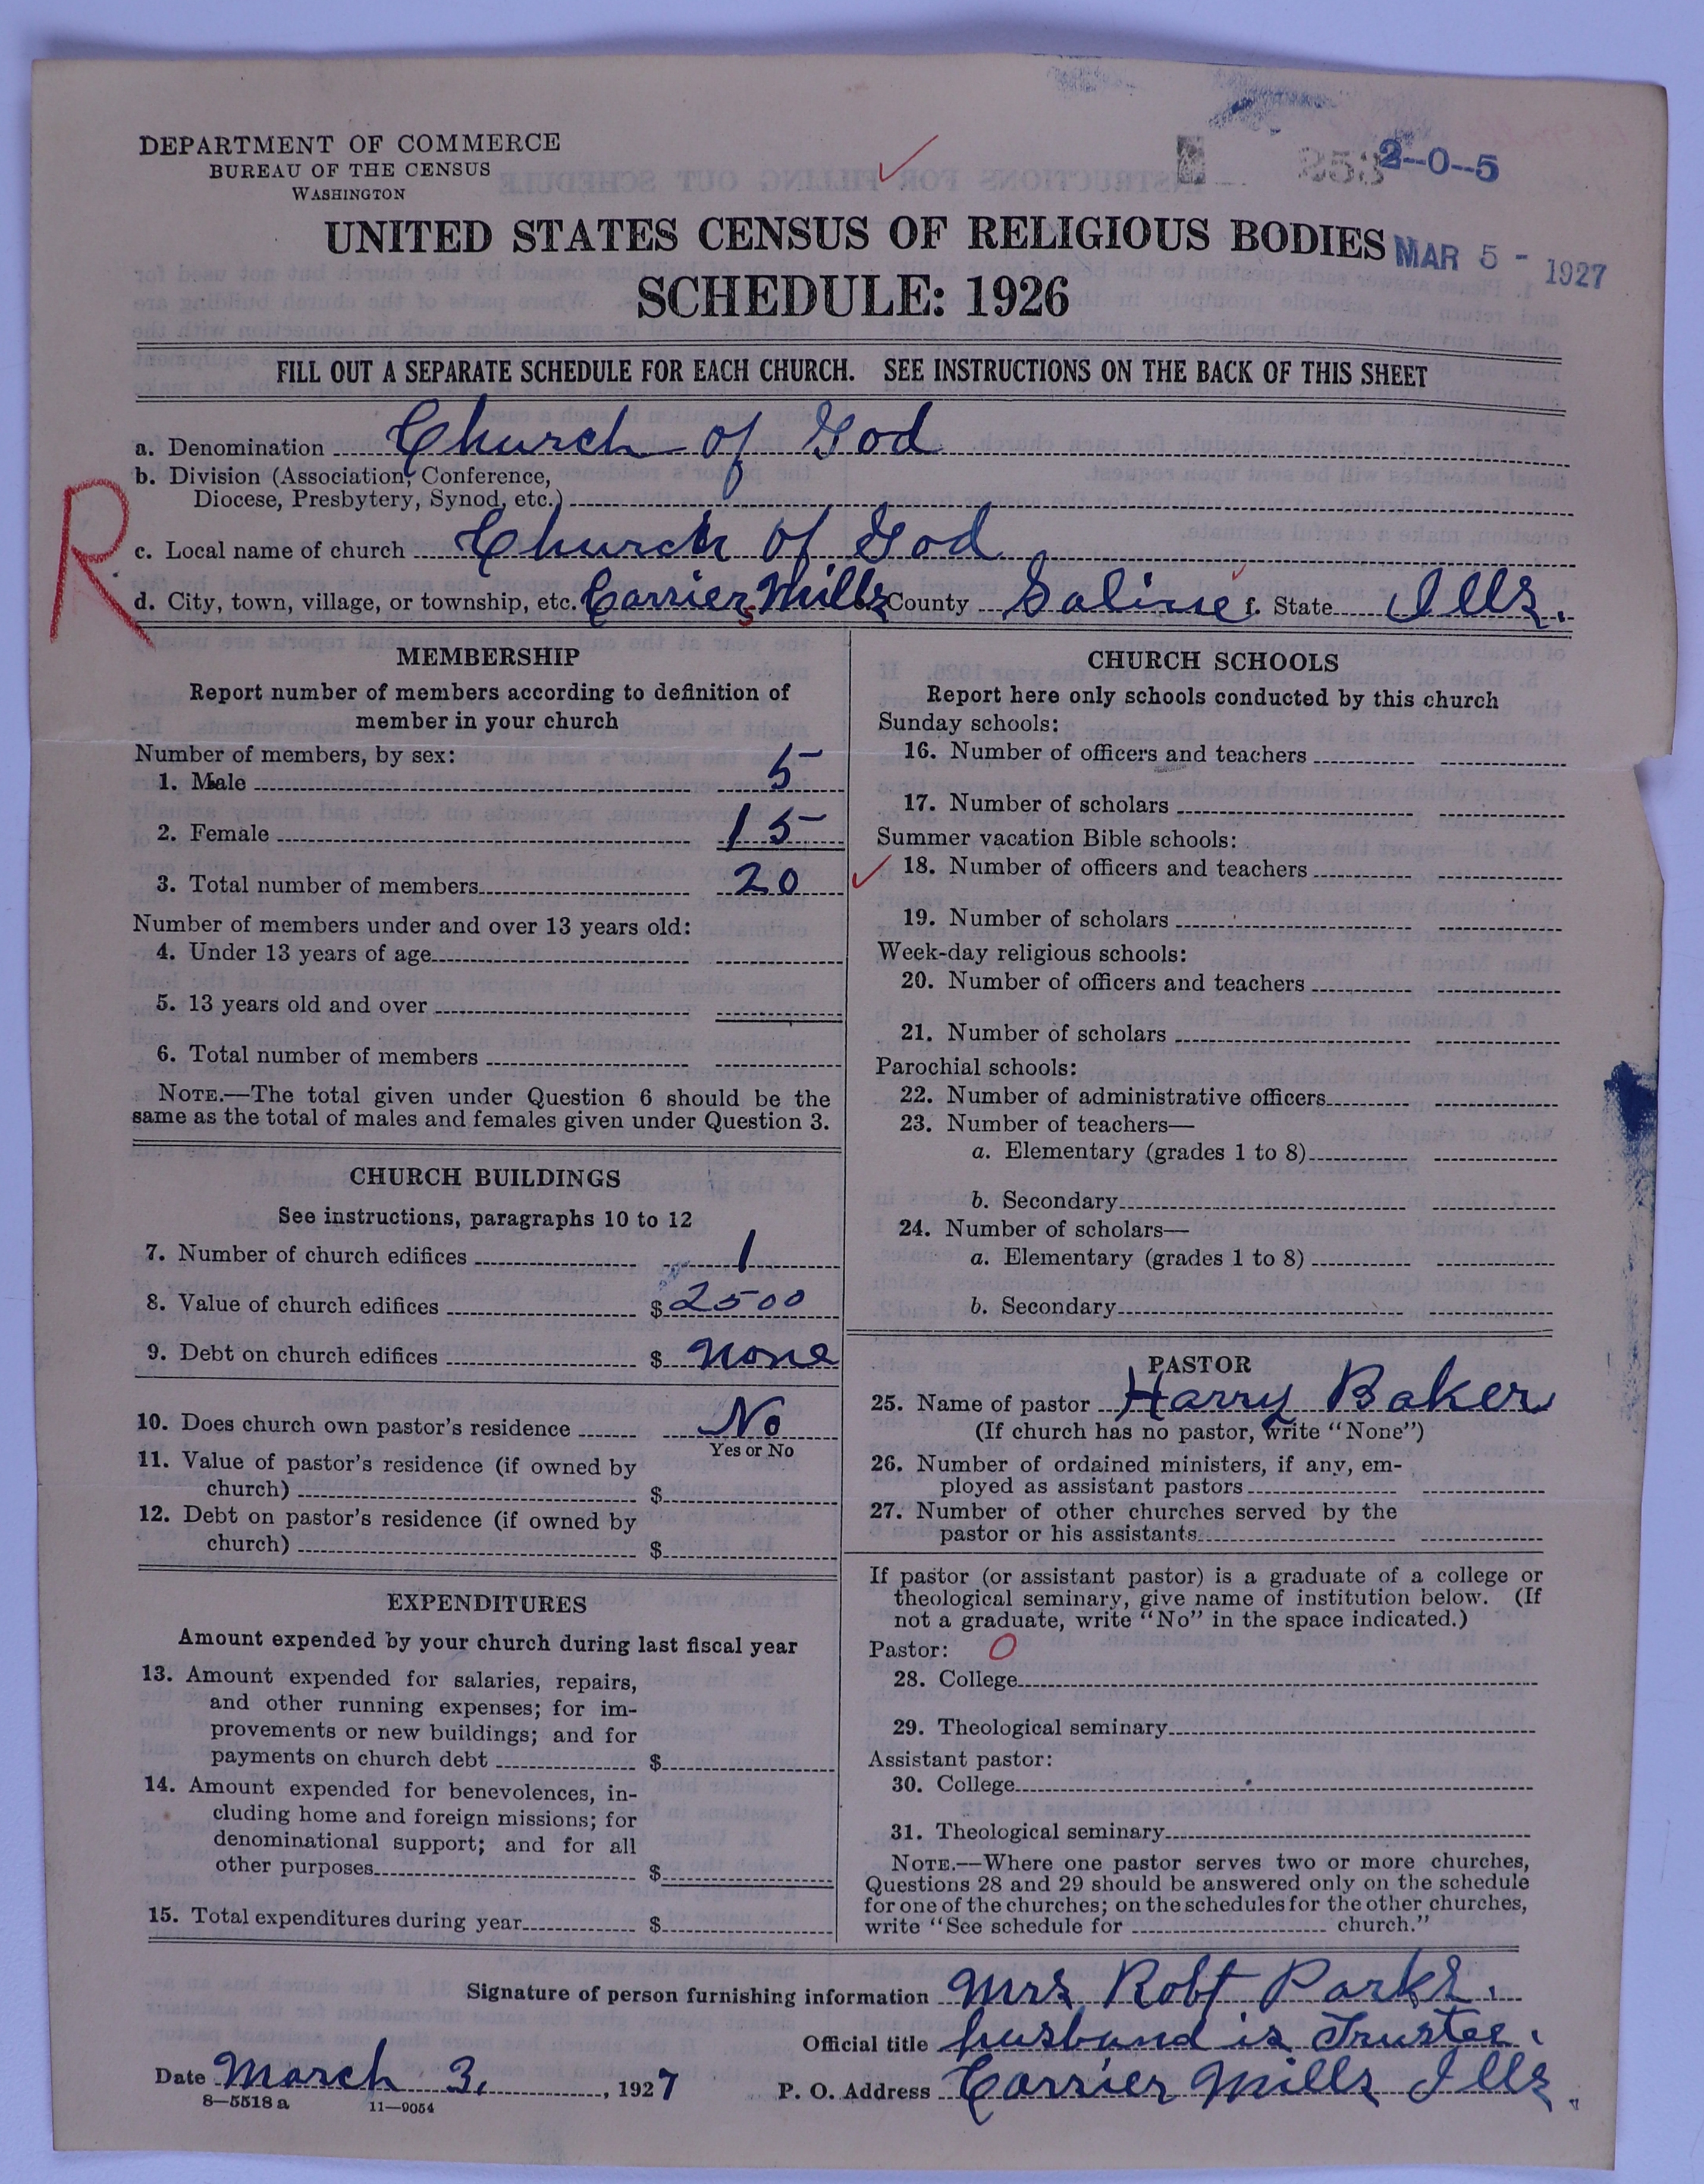 DEPARTMENT OF COMMERCE
BUREAU OF THE CENSUS
WASHINGTON
2-0-5
UNITED STATES CENSUS OF RELIGIOUS BODIES
MAR 5 - 1927
SCHEDULE: 1926
FILL OUT A SEPARATE SCHEDULE FOR EACH CHURCH. SEE INSTRUCTIONS ON THE BACK OF THIS SHEET
a. Denomination Church of God
b. Division (Association, Conference,
Diocese, Presbytery, Synod, etc.)
R
c. Local name of church Church of God
d. City, town, village, or township, etc. Carrier Mills County Saline f. State Ills.
MEMBERSHIP
Report number of members according to definition of
member in your church
Number of members, by sex:
1. Male 5
2. Female 15
3. Total number of members 20
Number of members under and over 13 years old:
4. Under 13 years of age
5. 13 years old and over
6. Total number of members
NOTE.—The total given under Question 6 should be the
same as the total of males and females given under Question 3.
CHURCH BUILDINGS
See instructions, paragraphs 10 to 12
7. Number of church edifices 1
8. Value of church edifices $ 2500
9. Debt on church edifices $ None
10. Does church own pastor's residence No
Yes or No
11. Value of pastor's residence (if owned by
church) $
12. Debt on pastor's residence (if owned by
church) $
EXPENDITURES
Amount expended by your church during last fiscal year
13. Amount expended for salaries, repairs,
and other running expenses; for im-
provements or new buildings; and for
payments on church debt $
14. Amount expended for benevolences, in-
cluding home and foreign missions; for
denominational support; and for all
other purposes $
15. Total expenditures during year $
CHURCH SCHOOLS
Report here only schools conducted by this church
Sunday schools:
16. Number of officers and teachers
17. Number of scholars
Summer vacation Bible schools:
18. Number of officers and teachers
19. Number of scholars
Week-day religious schools:
20. Number of officers and teachers
21. Number of scholars
Parochial schools:
22. Number of administrative officers
23. Number of teachers—
a. Elementary (grades 1 to 8)
b. Secondary
24. Number of scholars—
a. Elementary (grades 1 to 8)
b. Secondary
PASTOR
25. Name of pastor Harry Baker
(If church has no pastor, write "None")
26. Number of ordained ministers, if any, em-
ployed as assistant pastors
27. Number of other churches served by the
pastor or his assistants
If pastor (or assistant pastor) is a graduate of a college or
theological seminary, give name of institution below. (If
not a graduate, write "No" in the space indicated.)
Pastor: O
28. College
29. Theological seminary
Assistant pastor:
30. College
31. Theological seminary
NOTE.—Where one pastor serves two or more churches,
Questions 28 and 29 should be answered only on the schedule
for one of the churches; on the schedules for the other churches,
write "See schedule for church."
Signature of person furnishing information Mrs. Robt. Parks.
Official title husband is Trustee.
Date March 3, 1927 P. O. Address Carrier Mills Ills.
8—5518 a 11—9054